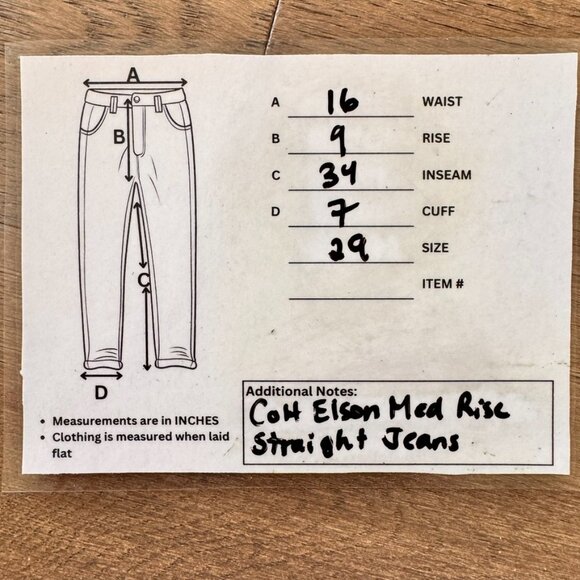 A
B
C
D
A 16 WAIST
B 9 RISE
C 34 INSEAM
D 7 CUFF
29 SIZE
ITEM #
• Measurements are in INCHES
• Clothing is measured when laid
flat
Additional Notes:
CoH Elson Med Rise
Straight Jeans